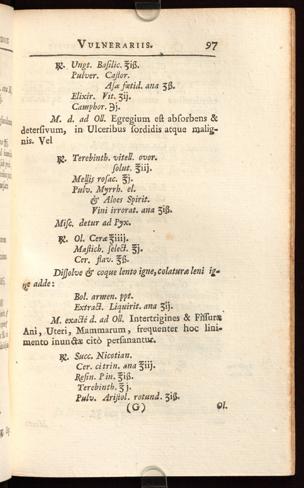 VULNERARIIS. 97
℞. Ungt. Basilic. ℥iß.
Pulver. Castor.
Asæ fœtid. ana ʒß.
Elixir. Vit. ʒij.
Camphor. ℈j.
M. d. ad Oll. Egregium est absorbens &
detersivum, in Ulceribus sordidis atque malig-
nis. Vel
℞. Terebinth. vitell. ovor.
solut. ℥iij.
Mellis rosac. ℥j.
Pulv. Myrrh. el.
& Aloes Spirit.
Vini irrorat. ana ʒiß.
Misc. detur ad Pyx.
℞. Ol. Ceræ ℥iiij.
Mastich. select. ℥j.
Cer. flav. ℥ß.
Dissolve & coque lento igne, colaturæ leni ig-
ne adde:
Bol. armen. ppt.
Extract. Liquirit. ana ʒij.
M. exactè d. ad Oll. Intertrigines & Fissuræ
Ani, Uteri, Mammarum, frequenter hoc lini-
mento inunctæ citò persanantur.
℞. Succ. Nicotian.
Cer. citrin. ana ℥iij.
Resin. Pin. ℥iß.
Terebinth. ℥j.
Pulv. Aristol. rotund. ʒiß.
(G) Ol.